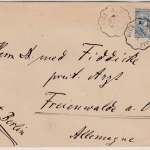 Herrn Dr. med Fiddicke
prakt. Arzt
Freienwalde a. O.
Allemagne
Berlin